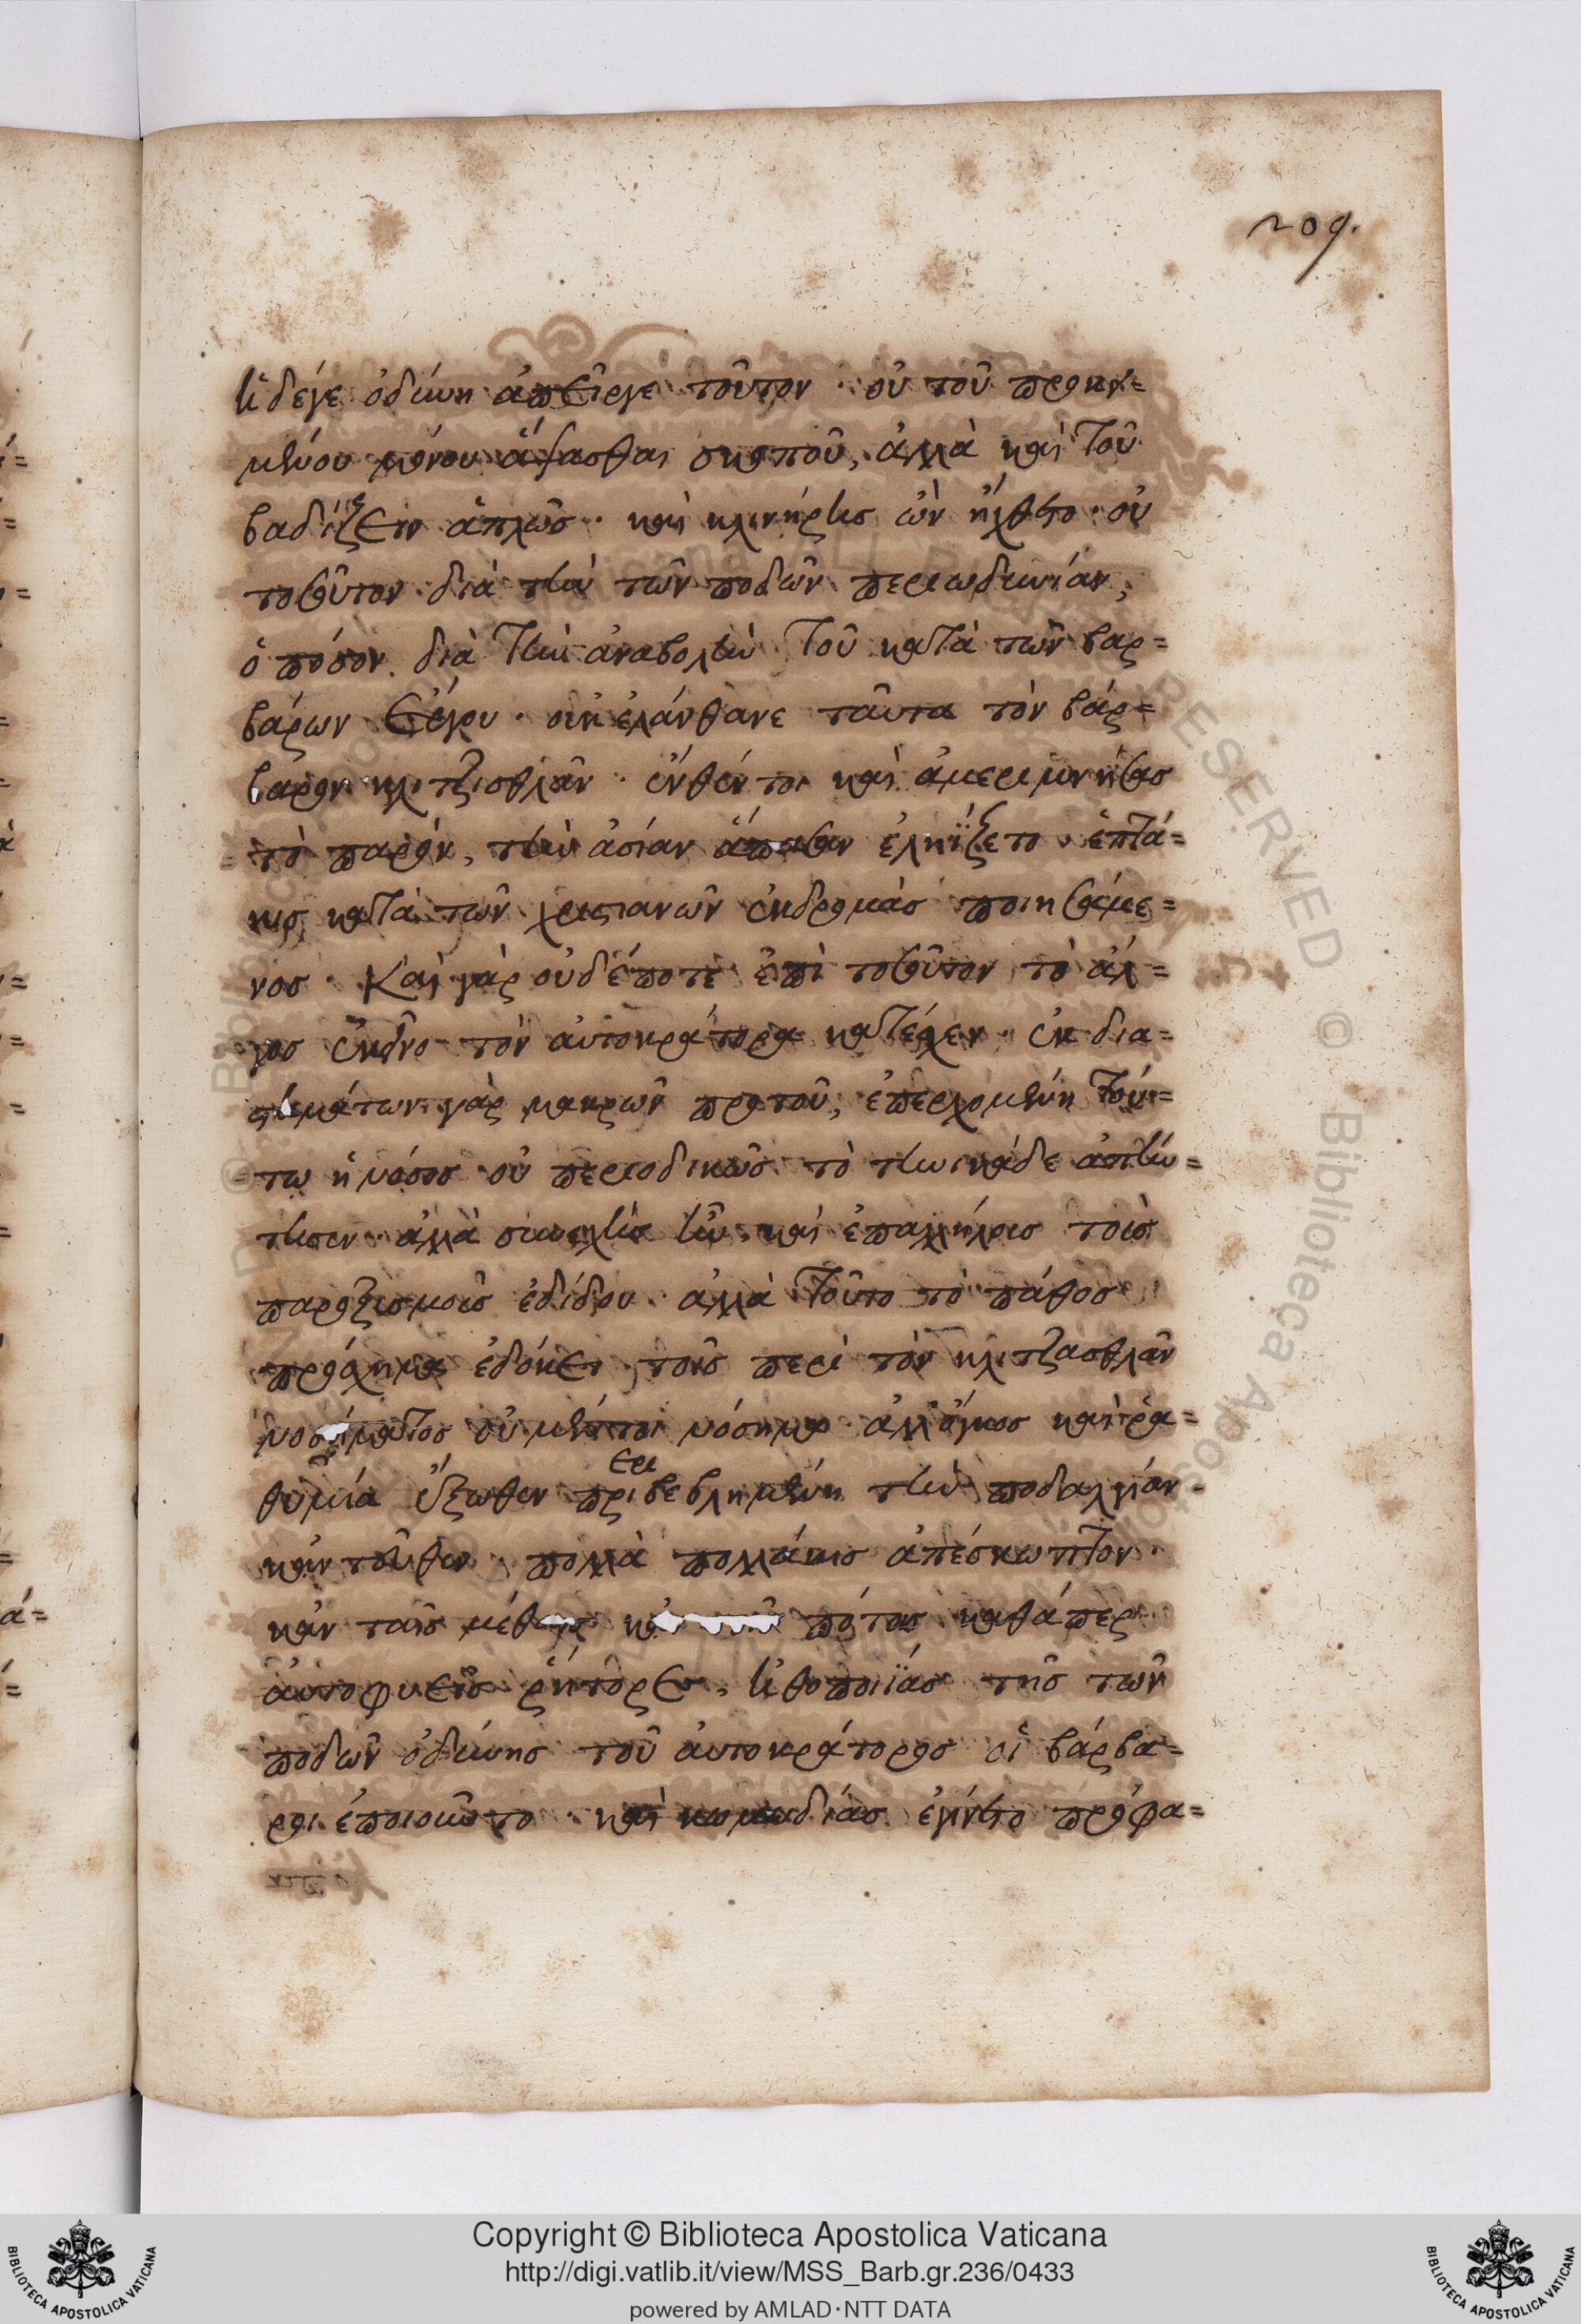 209.
ἡ δέγε ὀδύνη ἀπεῖργε τοῦτον · οὐ τοῦ προκει=
μένου μόνου ἅψασθαι σκοποῦ, ἀλλὰ καὶ τοῦ
βαδίζειν ἁπλῶς · καὶ κλινήρης ὢν ἤχθετο · οὐ
τοσοῦτον διὰ τὴν τῶν ποδῶν περιωδυνίαν,
ὁπόσον διὰ τὴν ἀναβολὴν τοῦ κατὰ τῶν βαρ=
βάρων ἔργου · οὐκ ἐλάνθανε ταῦτα τὸν βάρ=
βαρον κλιτζισθλὰν · ἐνθέν τοι καὶ ἀμεριμνήσας
τὸ παρὸν, τὴν ἀσίαν ἅπασαν ἐληΐζετο · ἑπτά=
κις κατὰ τῶν χριστιανῶν ἐκδρομὰς ποιησάμε=
νος · Καὶ γὰρ οὐδέποτε ἐπὶ τοσοῦτον τὸ ἄλ=
γος ἐκεῖνο τὸν αὐτοκράτορα κατέσχεν · ἐκ δια=
στημάτων γὰρ μακρῶν προτοῦ, ἐπερχομένη τού=
τω ἡ νόσος οὐ περιοδικῶς τὸ τηνικάδε ἀπήν=
τησεν · ἀλλὰ συνεχὴς ἦν, καὶ ἐπαλλήλοις τοῖς
παροξυσμοῖς ἐδίδου · ἀλλὰ τοῦτο τὸ πάθος
πρόσχημα ἐδόκει τοῖς περὶ τὸν κλιτζασθλὰν
νοσήματος οὐ μέντοι νόσημα · ἀλλ' ὄκνος καὶ ῥα=
θυμία ἔξωθεν περιβεβλημένη τὴν ποδαλγίαν ·
κἀντεῦθεν · πολλὰ πολλάκις ἀπέσκωπτον ·
κἀν ταῖς μέθαις κἀν τοῖς πότοις καθάπερ
αὐτοφυεῖς ῥήτορες, ἠθοποιΐας τῆς τῶν
ποδῶν ὀδύνης τοῦ αὐτοκράτορος οἱ βάρβα=
ροι ἐποιοῦντο · καὶ κωμωδίας ἐγίνετο πρόφα=
Copyright © Biblioteca Apostolica Vaticana
http://digi.vatlib.it/view/MSS_Barb.gr.236/0433
powered by AMLAD·NTT DATA
BIBLIOTECA APOSTOLICA VATICANA
BIBLIOTECA APOSTOLICA VATICANA